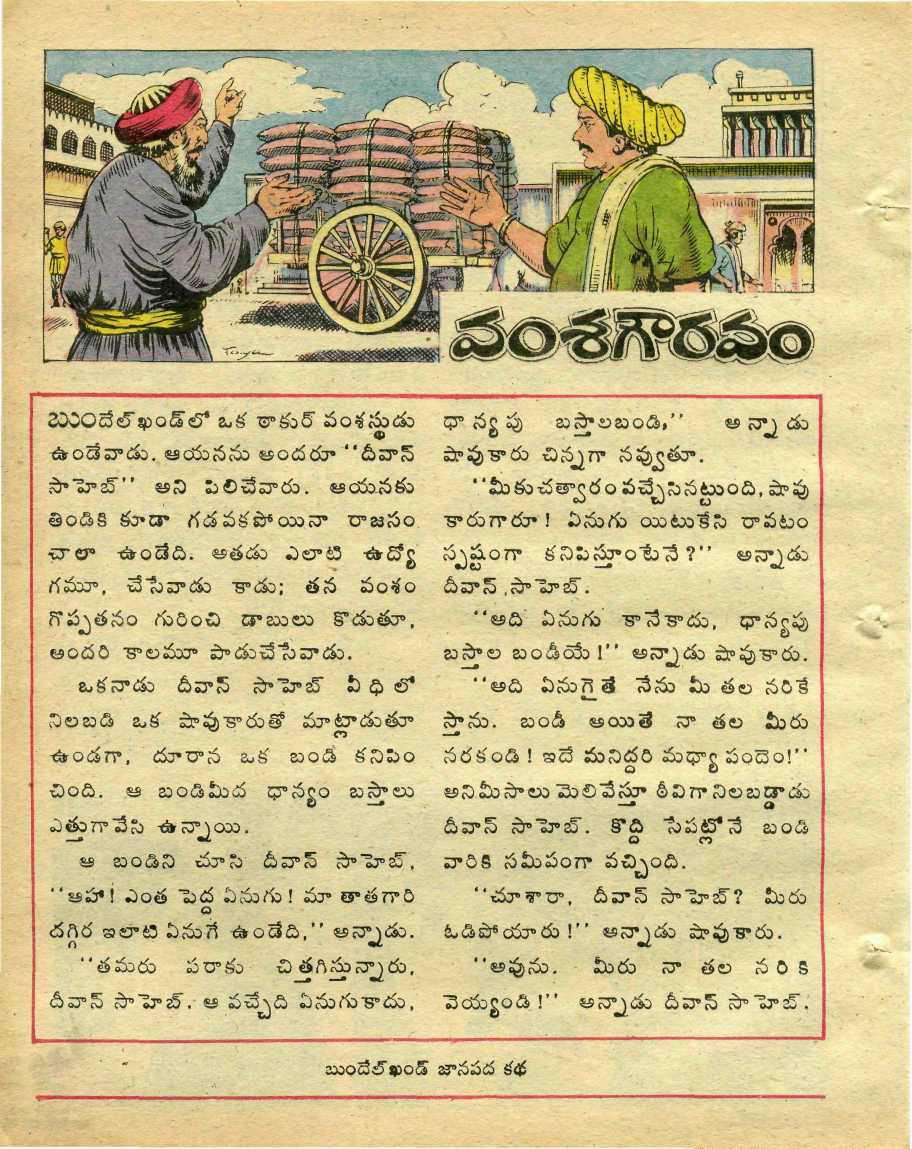 వంశగౌరవం
బుందేల్‌ఖండ్‌లో ఒక ఠాకుర్ వంశస్థుడు
ఉండేవాడు. ఆయనను అందరూ ‘‘దీవాన్
సాహెబ్’’ అని పిలిచేవారు. ఆయనకు
తిండికి కూడా గడవకపోయినా రాజసం
చాలా ఉండేది. అతడు ఎలాటి ఉద్యో
గమూ, చేసేవాడు కాడు; తన వంశం
గొప్పతనం గురించి డాబులు కొడుతూ,
అందరి కాలమూ పాడుచేసేవాడు.
ఒకనాడు దీవాన్ సాహెబ్ వీధిలో
నిలబడి ఒక షావుకారుతో మాట్లాడుతూ
ఉండగా, దూరాన ఒక బండి కనిపిం
చింది. ఆ బండిమీద ధాన్యం బస్తాలు
ఎత్తుగావేసి ఉన్నాయి.
ఆ బండిని చూసి దీవాన్ సాహెబ్,
‘‘ఆహా! ఎంత పెద్ద ఏనుగు! మా తాతగారి
దగ్గిర ఇలాటి ఏనుగే ఉండేది,’’ అన్నాడు.
‘‘తమరు పరాకు చిత్తగిస్తున్నారు,
దీవాన్ సాహెబ్. ఆ వచ్చేది ఏనుగుకాదు,
ధాన్యపు బస్తాలబండి,’’ అన్నాడు
షావుకారు చిన్నగా నవ్వుతూ.
‘‘మీకుచత్వారంవచ్చేసినట్టుంది, షావు
కారుగారూ! ఏనుగు యిటుకేసి రావటం
స్పష్టంగా కనిపిస్తూంటేనే?’’ అన్నాడు
దీవాన్ సాహెబ్.
‘‘అది ఏనుగు కానేకాదు, ధాన్యపు
బస్తాల బండీయే!’’ అన్నాడు షావుకారు.
‘‘అది ఏనుగైతే నేను మీ తల నరికే
స్తాను. బండీ అయితే నా తల మీరు
నరకండి! ఇదే మనిద్దరి మధ్యా పందెం!’’
అనిమీసాలు మెలివేస్తూ ఠీవిగానిలబడ్డాడు
దీవాన్ సాహెబ్. కొద్ది సేపట్లోనే బండి
వారికి సమీపంగా వచ్చింది.
‘‘చూశారా, దీవాన్ సాహెబ్? మీరు
ఓడిపోయారు!’’ అన్నాడు షావుకారు.
‘‘అవును. మీరు నా తల నరికి
వెయ్యండి!’’ అన్నాడు దీవాన్ సాహెబ్.
బుందేల్‌ఖండ్ జానపద కథ